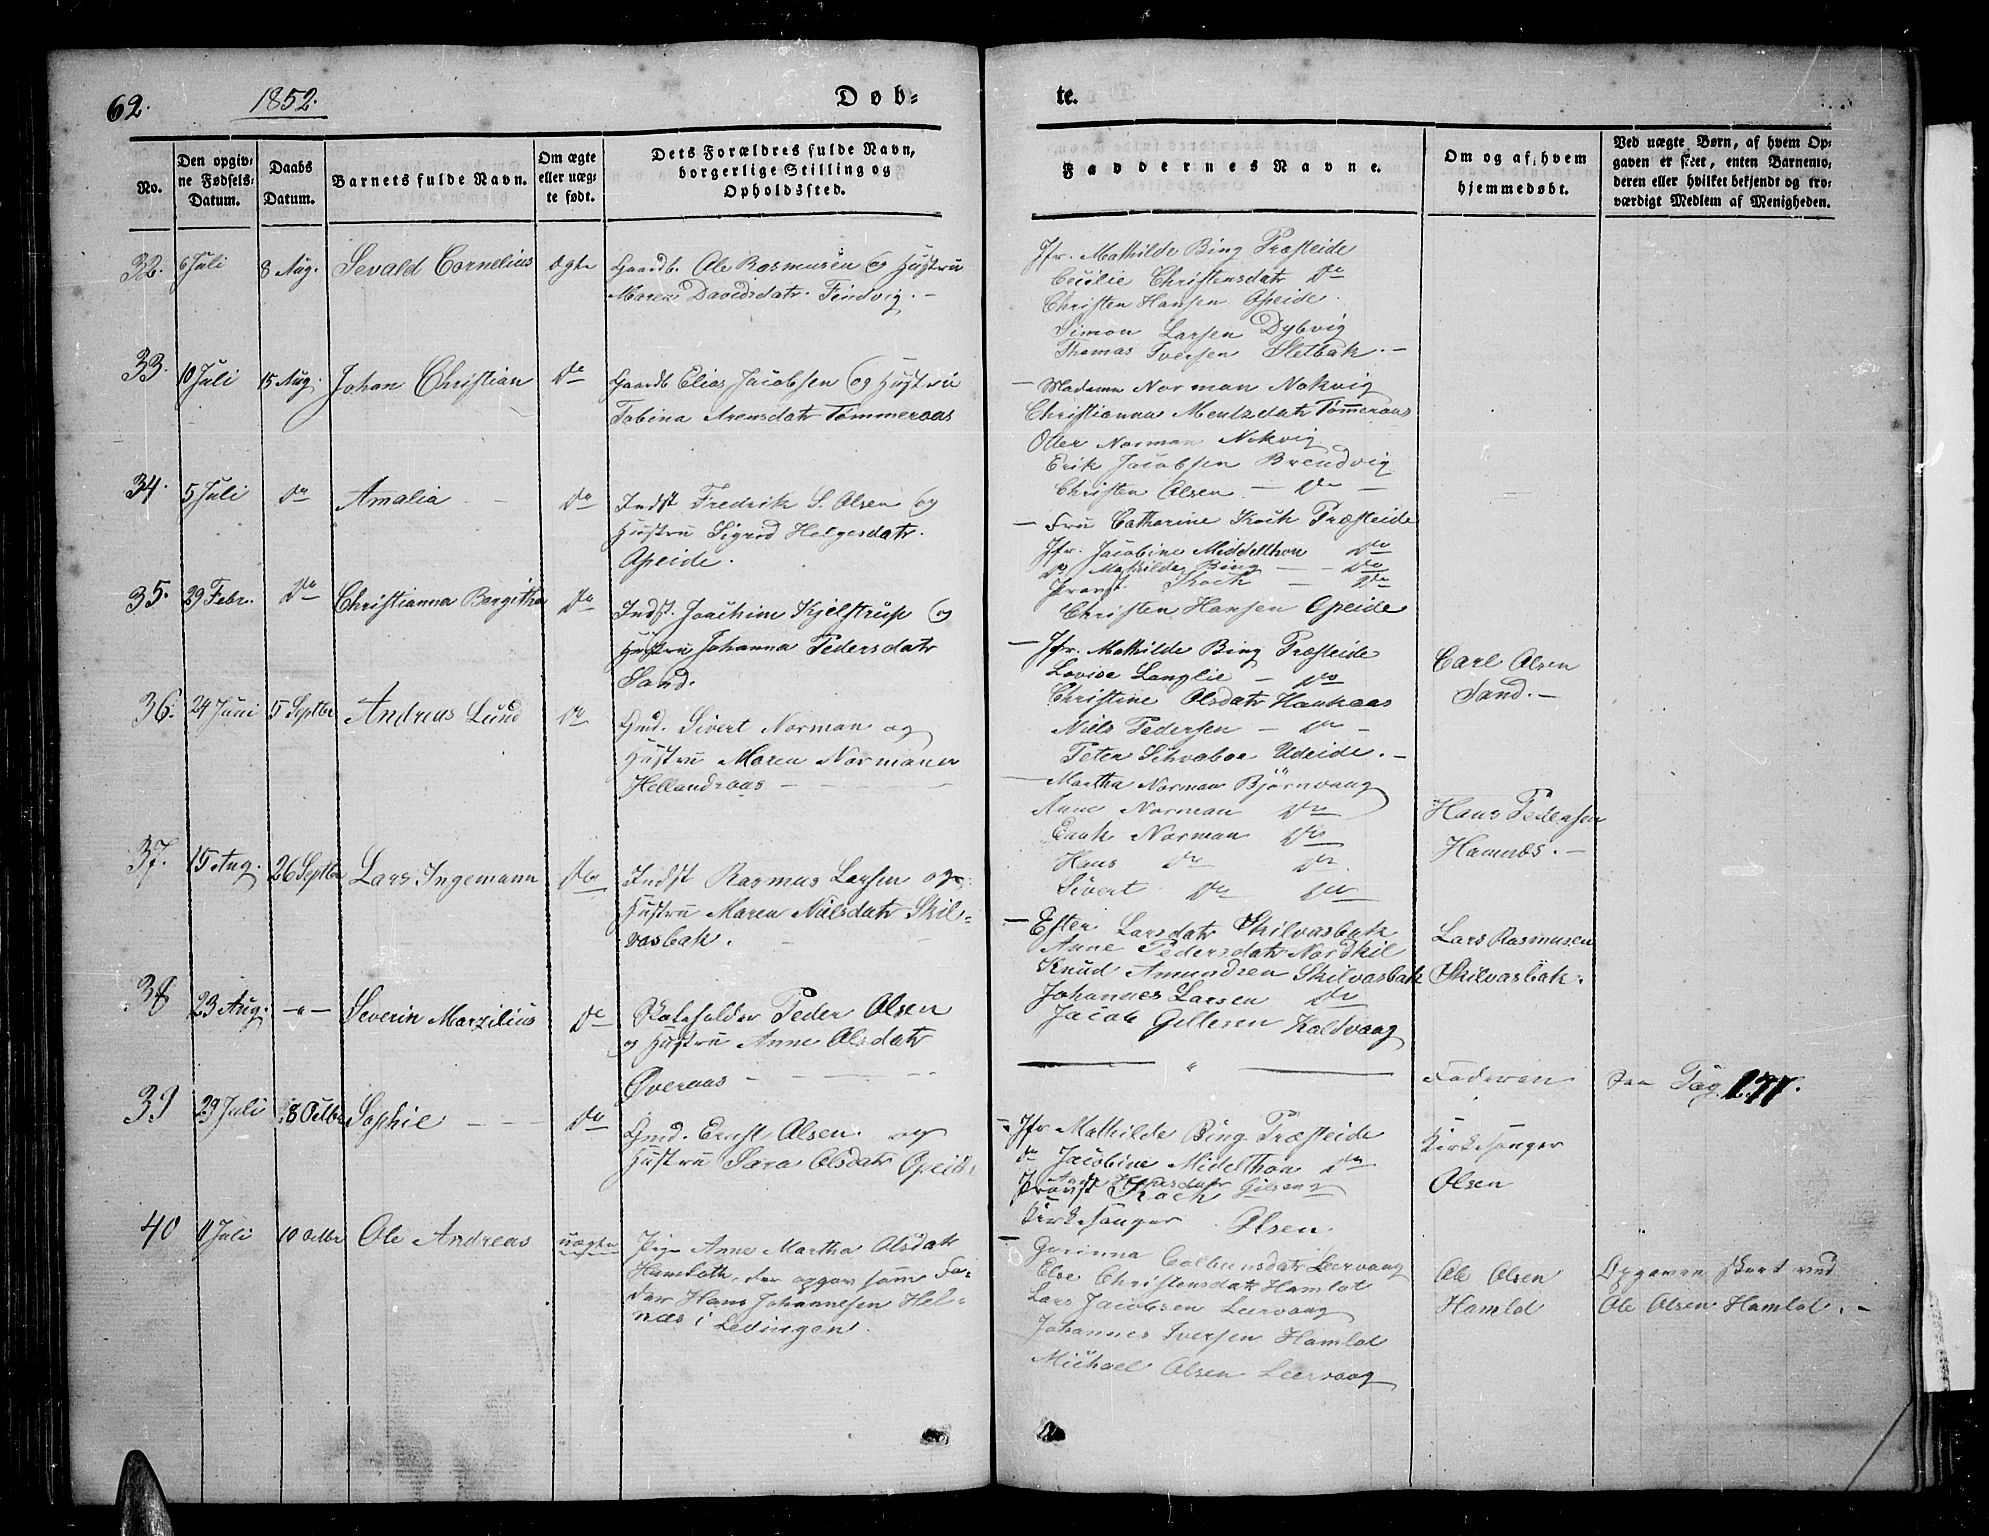 62.
1852.
Døb-
No.
Den opgiv-
ne Fødsels-
Datum.
Daabs
Datum.
Barnets fulde Navn.
Om ægte
eller uæg-
te født.
Dets Forældres fulde Navn,
borgerlige Stilling og
Opholdssted.
32. 6 Juli 8 Aug. Sevald Cornelius ægte Gaardb. Ole Rasmusen og Hustru
Maren Davidsdatr. Findvig. -
33. 10 Juli 15 Aug. Johan Christian do Gaardb Elias Jacobsen og Hustru
Tobina Arensdatr Tømmeraas
34. 5 Juli do Amalia - - do Indst Fredrik S. Olsen og
Hustru Sigrid Helgesdatr.
Opeide.
35. 29 Febr. do Christianna Bergitha do Indst. Joachim Kjelstrup og
Hustru Johanna Pedersdatr
Sand.
36. 24 Juni 5 Septbr Andreas Lund do Hmd. Sivert Norman og
Hustru Maren Normann
Hellandsaas -
37. 15 Aug. 26 Septbr Lars Ingemann do Indst Rasmus Larsen og
Hustru Maren Nilsdatr Skil-
vasbak.
38 23 Aug. -"- Severin Marzilius do Peder Olsen
og Hustru Anne Olsdatr
Øveraas -
39 29 Juli 8 Octbr Sophie - - - do Hmd. Ernst Olsen og
Hustru Sara Olsdatr Opeid.
40 11 Juli 10 Octbr Ole Andreas uægte Pige Anne Martha Olsdatr
Hamloth, der opgav som Fa-
der Hans Johannesen Hel-
næs i Lødingen.
te.
Faddernes Navne.
Om og af hvem
hjemmedøbt.
Ved uægte Børn, af hvem Op-
gaven er skeet, enten Barnemo-
deren eller hvilket bekjendt og tro-
værdigt Medlem af Menigheden.
Jfr. Mathilde Bing Præsteide
Cecilie Christensdatr do
Christen Hansen Opeide.
Simon Larsen Dybvig
Thomas Iversen Sletbak. -
- Madame Norman Nokvig
Christianna Mentzdatr Tømmeraas
Otter Norman Nokvig
Erik Jacobsen Brendvig
Christen Olsen - do -
- Fru Catharine Koch Præsteide
Jfr. Jacobine Middelthon do
do Mathilde Bing - - do
Provst Koch - do
Christen Hansen Opeide
- Jfr. Mathilde Bing Præsteide
Lovise Langlie - do
Christine Olsdatr Haukaas
Niels Pedersen - do -
Peter Schvaboe Udeide. -
Carl Olsen
Sand. -
- Martha Norman Björnvaag
Anne Norman do
Enok Norman do
Hans do do
Sivert do do
Hans Pedersen
Hamnæs. -
- Ester Larsdatr Skilvasbak
Anne Pedersdatr Nordskil
Knud Amundsen Skilvasbak
Johannes Larsen do
Jacob Gellesen Kaldvaag
Lars Rasmusen
Skilvasbak.
- " - Faderen See Pag. 277.
- Jfr Mathilde Bing Præsteide
do Jacobine Midelthon do
Provst Koch
Kirkesanger Olsen
Kirkesanger
Olsen
- Gurinna Leervaag
Else Christensdatr Hamlot
Lars Jacobsen Leervaag
Johannes Iversen Hamlot
Michael Olsen Leervaag
Ole Olsen
Hamlot
Opgaven skeet ved
Ole Olsen Hamlot. -